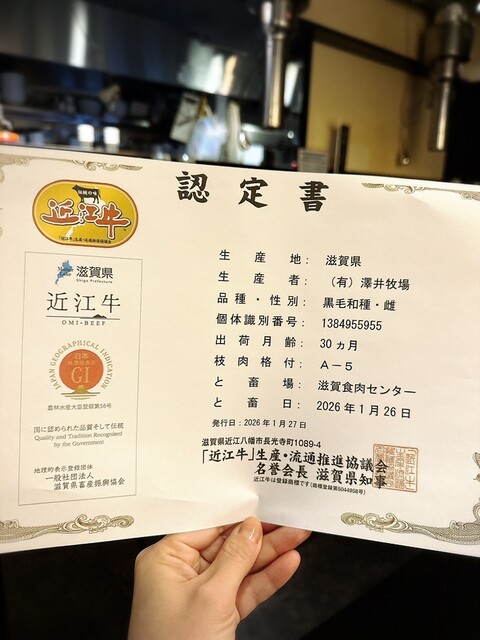 認定書
伝統の味
近江牛
「近江牛」生産・流通推進協議会
滋賀県
Shiga Prefecture
近江牛
OMI-BEEF
JAPAN GEOGRAPHICAL INDICATION
日本
地理的表示
GI
農林水産大臣登録第56号
国に認められた品質そして伝統
Quality and Tradition Recognized
by the Government
地理的表示登録団体
一般社団法人
滋賀県畜産振興協会
生産地: 滋賀県
生産者: (有)澤井牧場
品種・性別: 黒毛和種・雌
個体識別番号: 1384955955
出荷月齢: 30ヵ月
枝肉格付: A-5
と畜場: 滋賀食肉センター
と畜日: 2026年1月26日
発行日:2026年1月27日
滋賀県近江八幡市長光寺町1089-4
「近江牛」生産・流通推進協議会
名誉会長 滋賀県知事
近江牛は登録商標です(商標登録第5044958号)